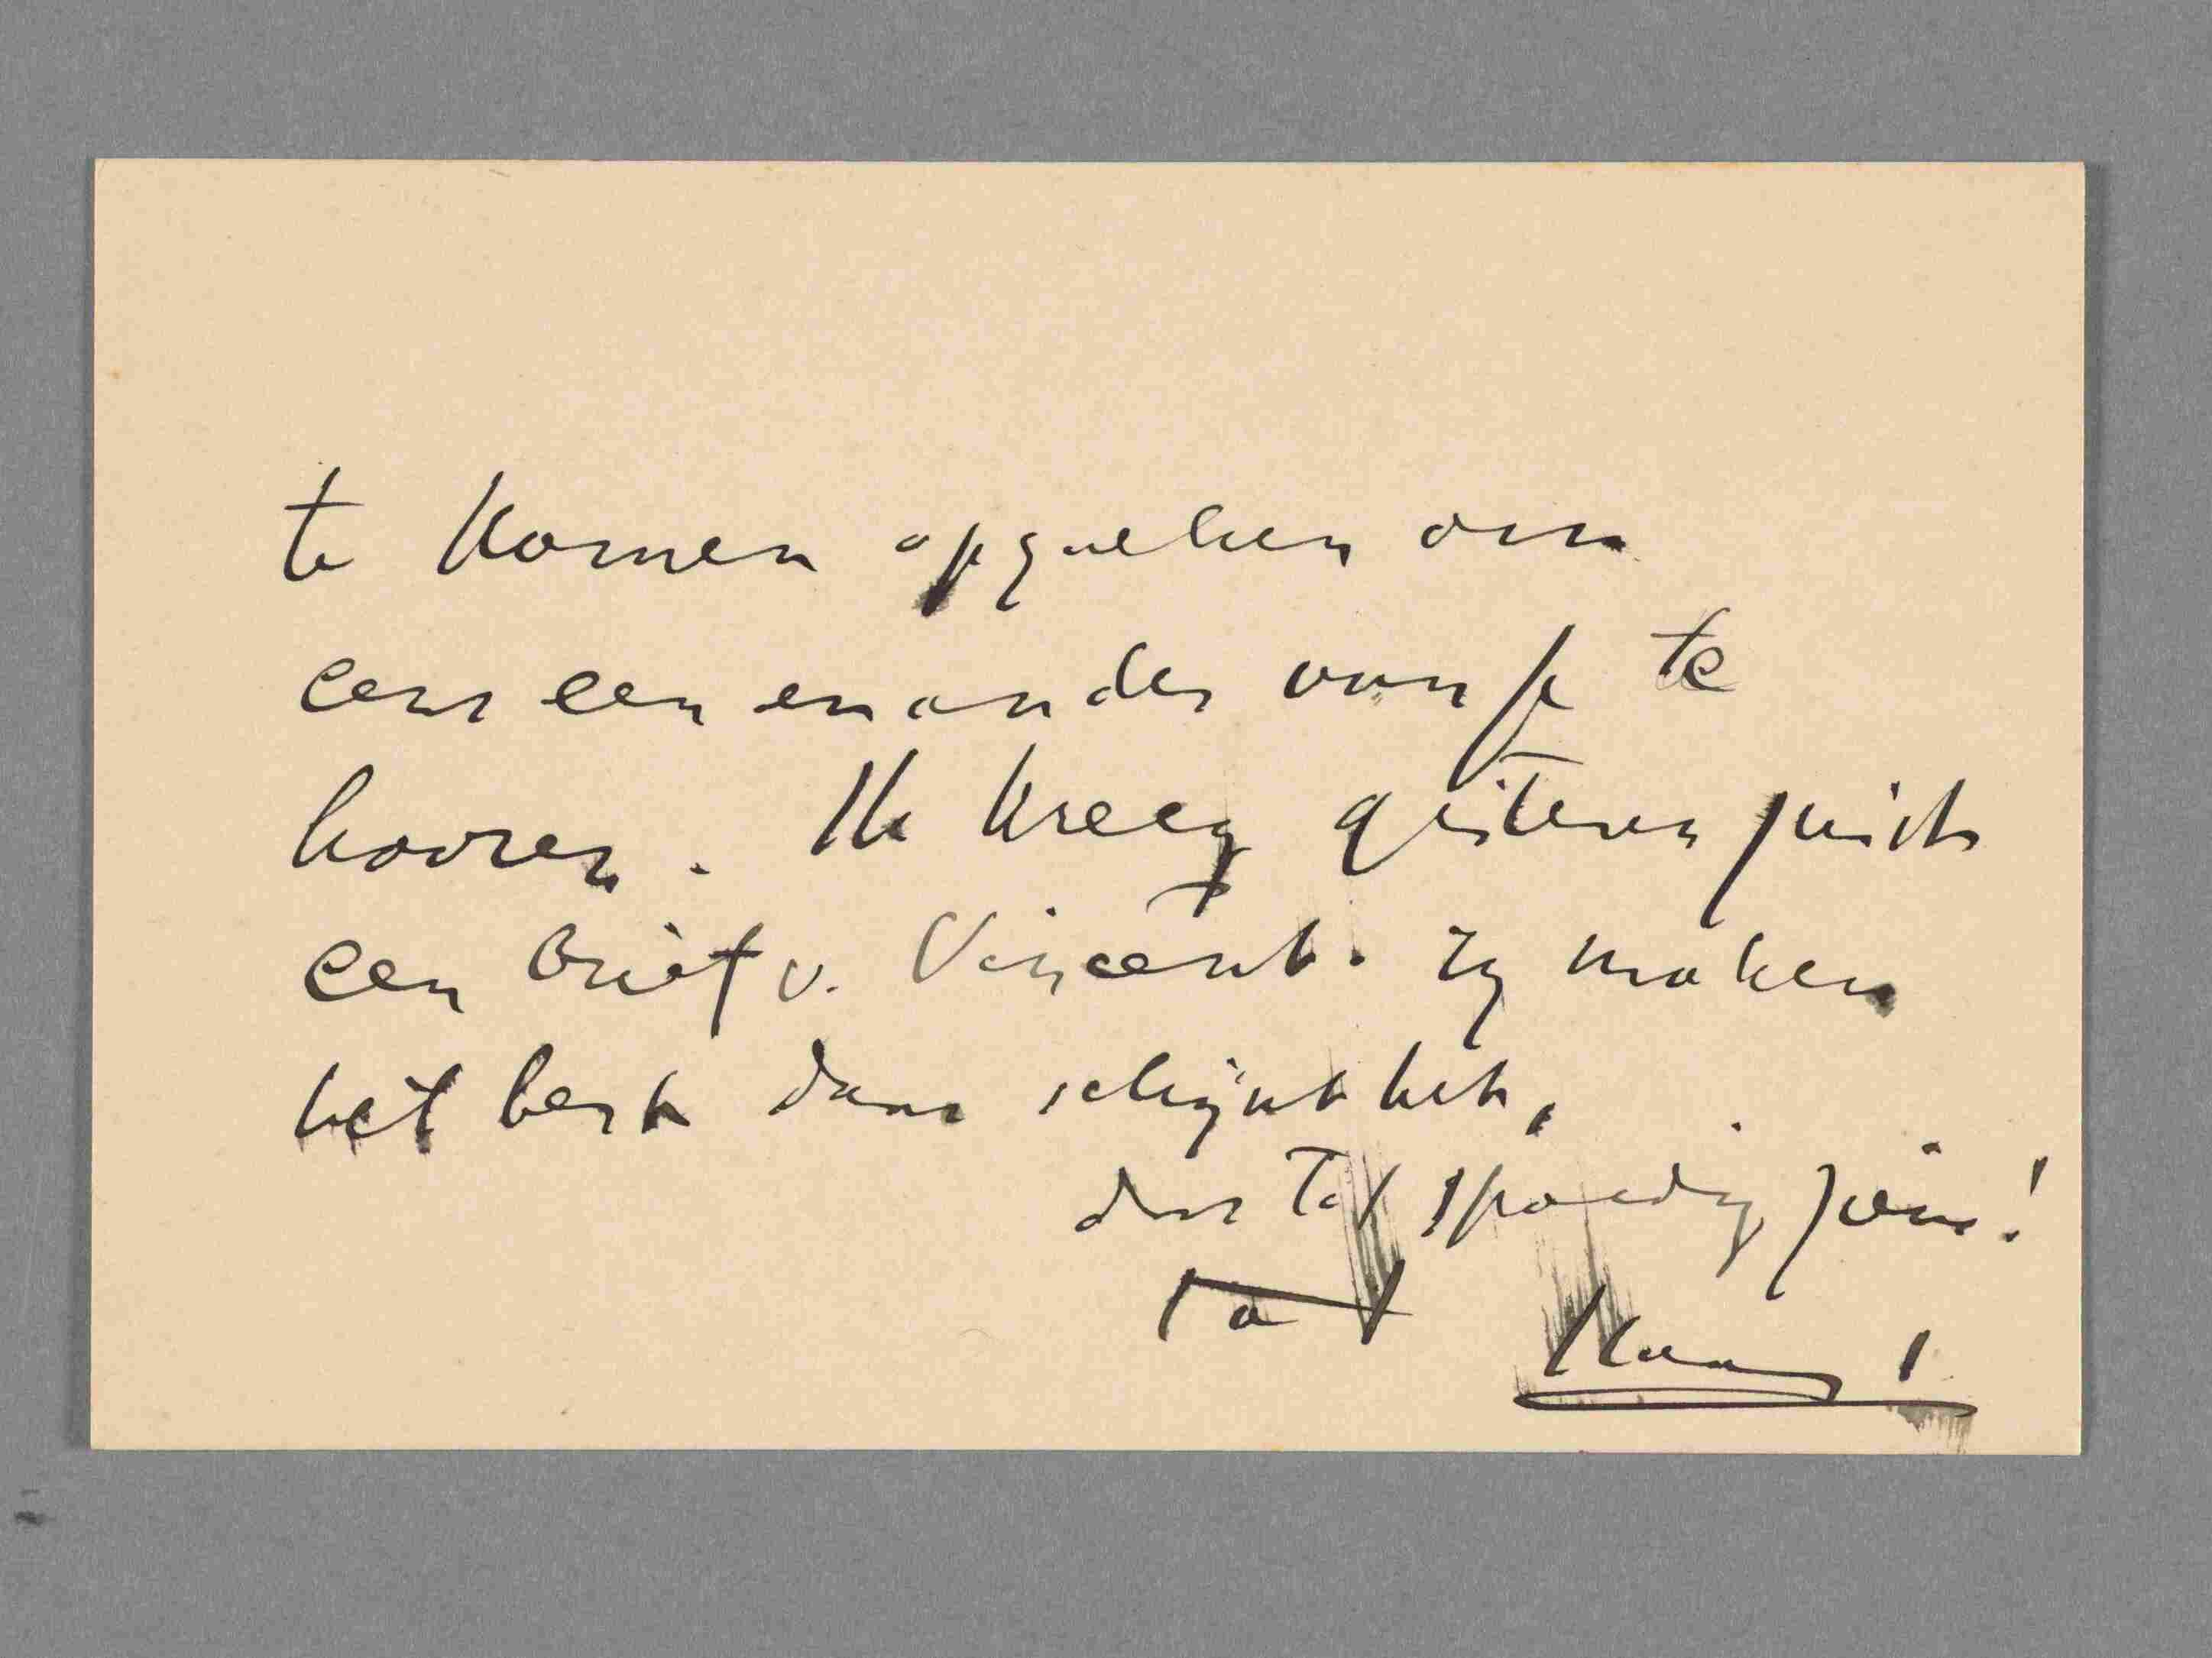 te komen opzoeken om
eens een en ander van je te
hooren. Ik kreeg gisteren juist
een brief v. Vincent. Zij maken
het best daar schijnt het,
dus Tot spoedig
Tot